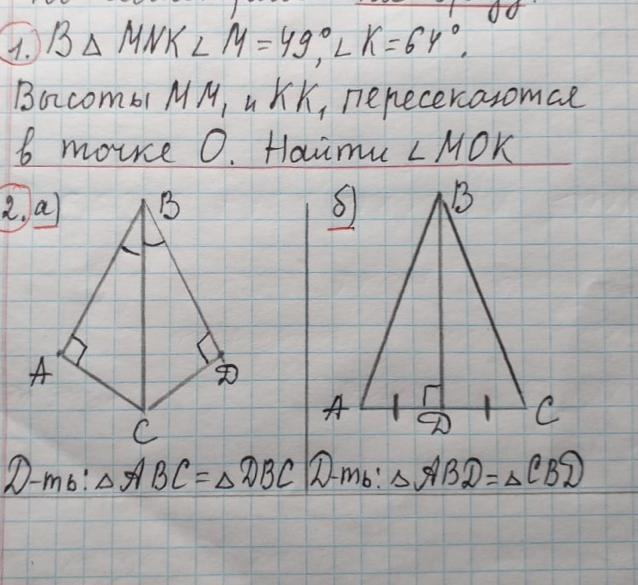 1. В △ MNK ∠ M = 49°, ∠ K = 64°.
Высоты MM₁ и KK₁ пересекаются
в точке O. Найти ∠ MOK
2. а)
B
A
D
C
Д-ть: △ ABC = △ DBC
б)
B
A
D
C
Д-ть: △ ABD = △ CBD